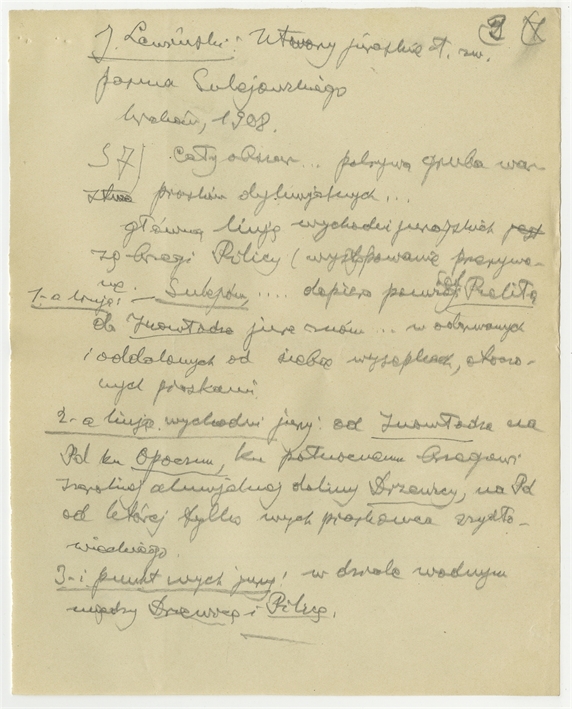 J. Lewiński: Utwory jurajskie t. zw.
pasma Sulejowskiego
Kraków, 1908.
S 7) Cały obszar... pokrywa gruba war-
stwa piasków dyluwjalnych...
główną linję wychodni jurajskich
są brzegi Pilicy (występowanie przerywa-
ne.
1-a linja: - Sulejów.... dopiero poniżej
do Inowłodza jura znów... w oderwanych
i oddalonych od siebie wysepkach, otoczo-
nych piaskami.
2-a linja wychodni jury: od Inowłodza na
Pd ku Opocznu, ku północnemu brzegowi
szerokiej aluwjalnej doliny Drzewicy, na Pd
od której tylko wych piaskowca szydło-
wieckiego.
3-i punkt wych jury: w dziale wodnym
między Drzewicą i Pilicą.